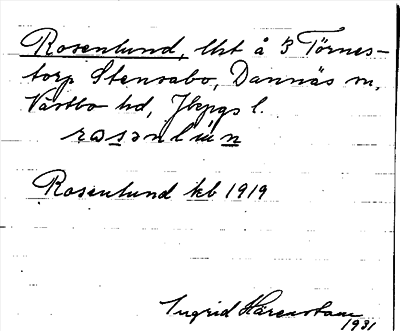 Rosenlund, lht å 3 Törnes-
torp Stensabo, Dannäs sn,
Västbo hd, Jkpgs l.
rosənlɯn
Rosenlund kb 1919
Ingrid Härenstam
1931